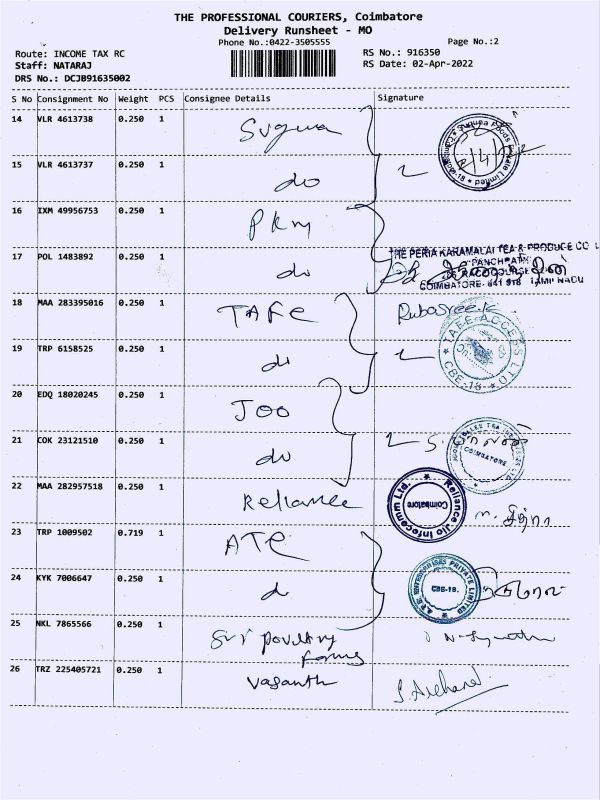 THE PROFESSIONAL COURIERS, Coimbatore
Delivery Runsheet - MO
Phone No.:0422-3505555
Page No.:2
Route: INCOME TAX RC
RS No.: 916350
Staff: NATARAJ
RS Date: 02-Apr-2022
DRS No.: DCJB91635002
S No Consignment No Weight PCS Consignee Details Signature
14 VLR 4613738 0.250 1 Suguna
15 VLR 4613737 0.250 1 do
16 IXM 49956753 0.250 1 PKM
THE PERIA KARAMALAI TEA & PRODUCE CO L
17 POL 1483892 0.250 1 do
COIMBATORE- 641 018 TAMIL NADU
18 MAA 283395016 0.250 1 TAFE Rubasree.K
TAFE ACCESS LTD
CBE-18
19 TRP 6158525 0.250 1 do
20 EDQ 18020245 0.250 1 JOO
21 COK 23121510 0.250 1 do
COIMBATORE
22 MAA 282957518 0.250 1 Reliance
Reliance Jio Infocomm Ltd.
Coimbatore
23 TRP 1009502 0.719 1 ATE
24 KYK 7006647 0.250 1 d
ENTERPRISES PRIVATE LIMITED
CBE-18.
25 NKL 7865566 0.250 1 Sri poultry
farms
26 TRZ 225405721 0.250 1 Vasanth